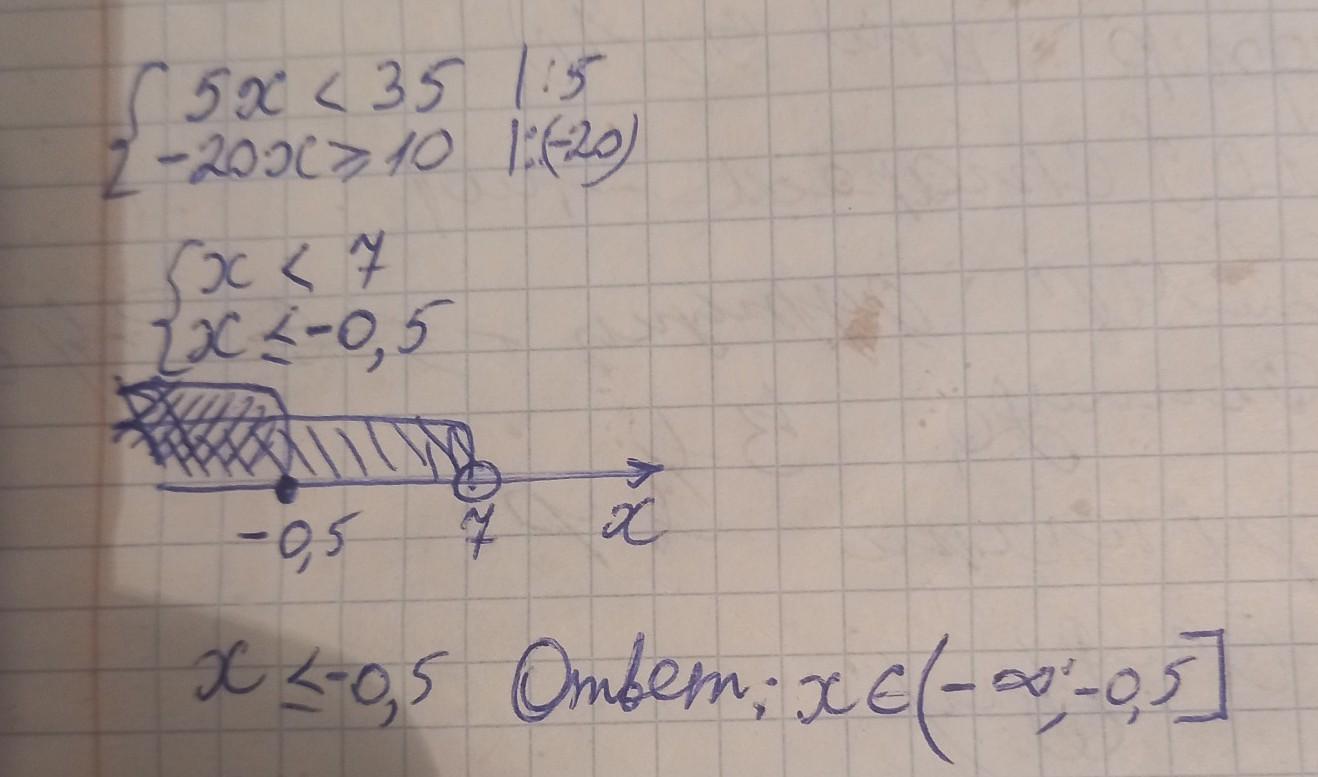 { 5x < 35 |:5
-20x ≥ 10 |:(-20)
{ x < 7
x ≤ -0,5
-0,5 7 x
x ≤ -0,5 Ответ: x ∈ (-∞; -0,5]